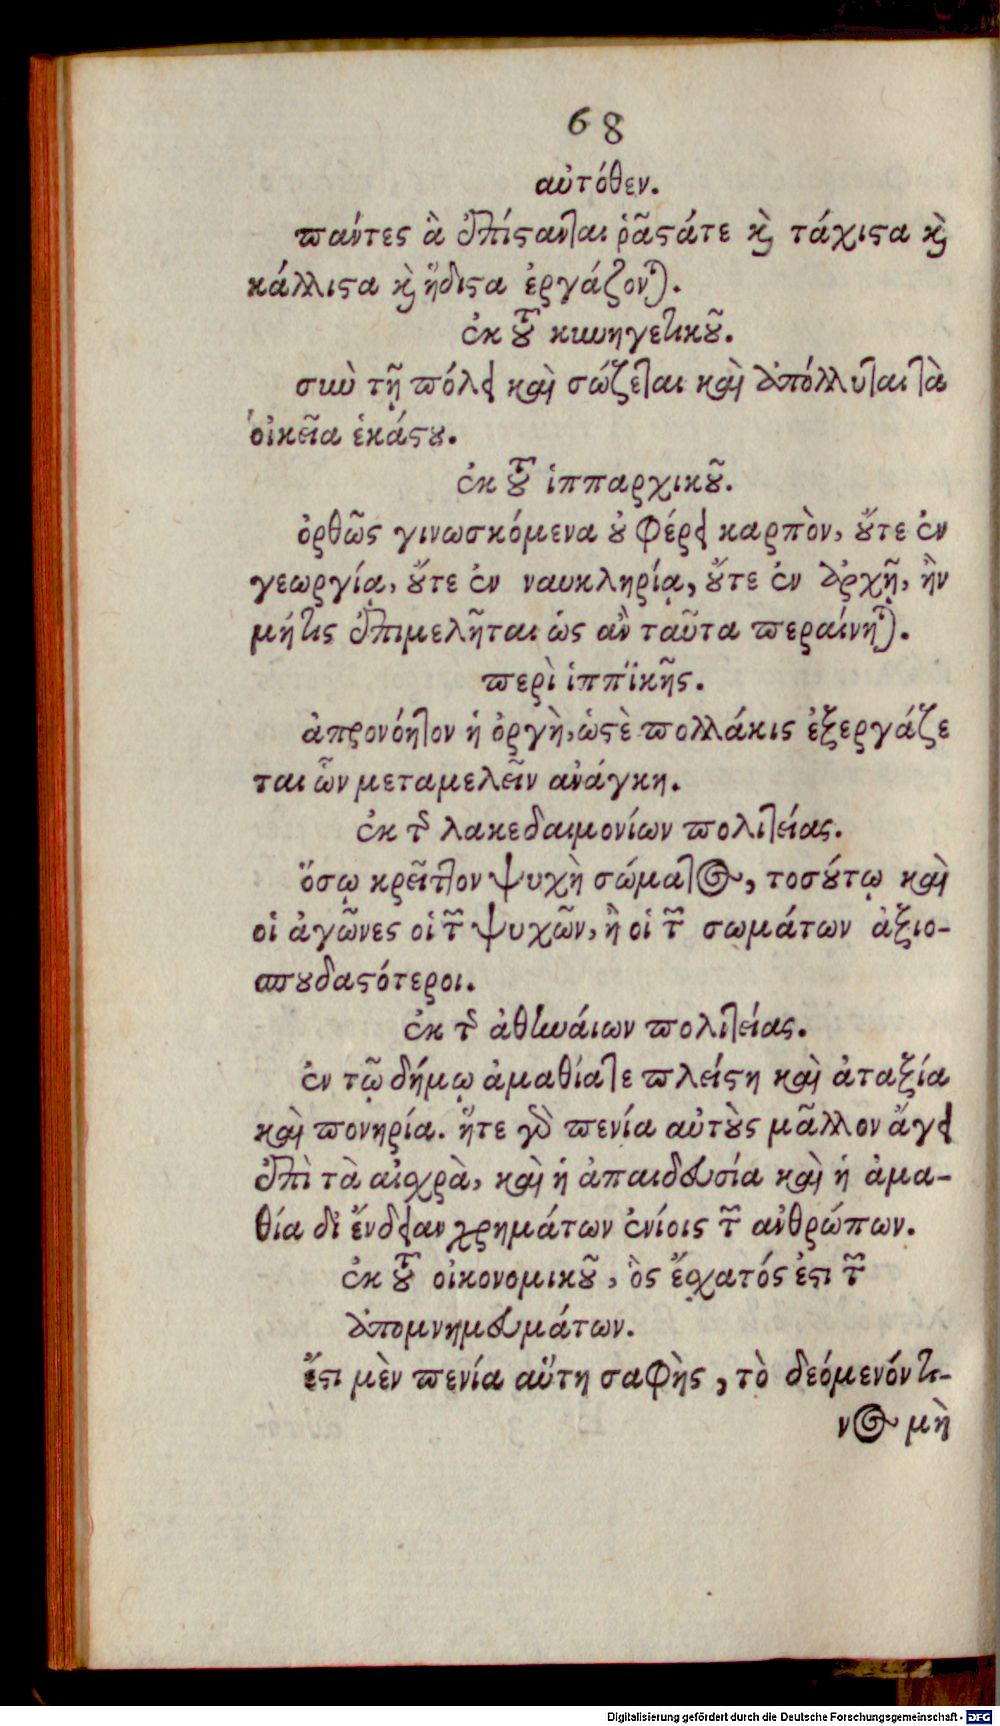 68
αὐτόθεν.
πάντες ἃ ἐπίστανται ῥᾷστά τε καὶ τάχιστα καὶ
κάλλιστα καὶ ἥδιστα ἐργάζονται.
ἐκ τοῦ κυνηγετικοῦ.
σὺν τῇ πόλει καὶ σώζεται καὶ ἀπόλλυται τὰ
οἰκεῖα ἑκάστου.
ἐκ τοῦ ἱππαρχικοῦ.
ὀρθῶς γινωσκόμενα οὐ φέρει καρπὸν, οὔτε ἐν
γεωργίᾳ, οὔτε ἐν ναυκληρίᾳ, οὔτε ἐν ἀρχῇ, ἢν
μήτις ἐπιμελῆται ὡς ἂν ταῦτα περαίνηται.
περὶ ἱππϊκῆς.
ἀπρονόητον ἡ ὀργὴ, ὥστε πολλάκις ἐξεργάζε
ται ὧν μεταμελεῖν ἀνάγκη.
ἐκ τῆς λακεδαιμονίων πολιτείας.
ὅσῳ κρεῖττον ψυχὴ σώματος, τοσούτῳ καὶ
οἱ ἀγῶνες οἱ τῶν ψυχῶν, ἢ οἱ τῶν σωμάτων ἀξιο-
σπουδαστότεροι.
ἐκ τῆς ἀθηνάιων πολιτείας.
ἐν τῷ δήμῳ ἀμαθία τε πλείστη καὶ ἀταξία
καὶ πονηρία. ἥτε γὰρ πενία αὐτοὺς μᾶλλον ἄγει
ἐπὶ τὰ αἰσχρὰ, καὶ ἡ ἀπαιδευσία καὶ ἡ ἀμα-
θία δι ἔνδειαν χρημάτων ἐνίοις τῶν ἀνθρώπων.
ἐκ τοῦ οἰκονομικοῦ, ὃς ἔσχατός ἐστι τῶν
ἀπομνημευμάτων.
ἔστι μὲν πενία αὕτη σαφὴς, τὸ δεόμενόν τι-
νος μὴ
Digitalisierung gefördert durch die Deutsche Forschungsgemeinschaft - DFG